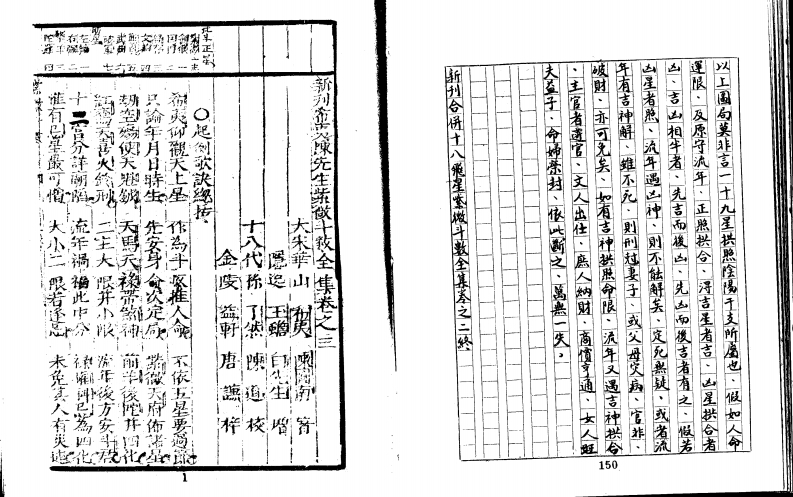 以上圖局莫非言一十九星拱照陰陽干支所屬也、假如人命
運限、及原守流年、正照拱合、得吉星者吉、凶星拱合者
凶、吉凶相半者、先吉而後凶、先凶而後吉者有之、假若
凶星者照、流年遇凶神、則不能解矣、定死無疑、或者流
年有吉神解、雖不死、則刑尅妻子、或父母灾病、官非、
破財、亦可免矣、如有吉神拱照命限、流年又遇吉神拱合
、主官者遷官、文人出仕、庶人納財、商賈亨通、女人旺
夫益子、命婦榮封、依此斷之、萬無一失。
新刊合併十八飛星紫微斗數全集卷之二終
150
新刊希夷陳先生紫微斗数全集卷之三
大宋華山 希夷 陳圖南 著
隱逸 玉蟾 白先生 增
十八代孫 了然 陳道 校
金陵 益軒 唐謙 梓
○起例歌訣總括
希夷仰觀天上星 作為斗數推人命 不依五星要過節
只論年月日時生 先安身命次定局 紫微天府佈諸星
劫空傷使天魁鉞 天馬天祿帶煞神 前羊後陀并四化
紅鸞天喜火鈴刑 二主大限并小限 流年後方安斗君
十二宮分詳廟陷 流年禍福此中分 祿權科忌為四化
惟有忌星最可憎 大小二限若逢忌 未免其人有災迍
1